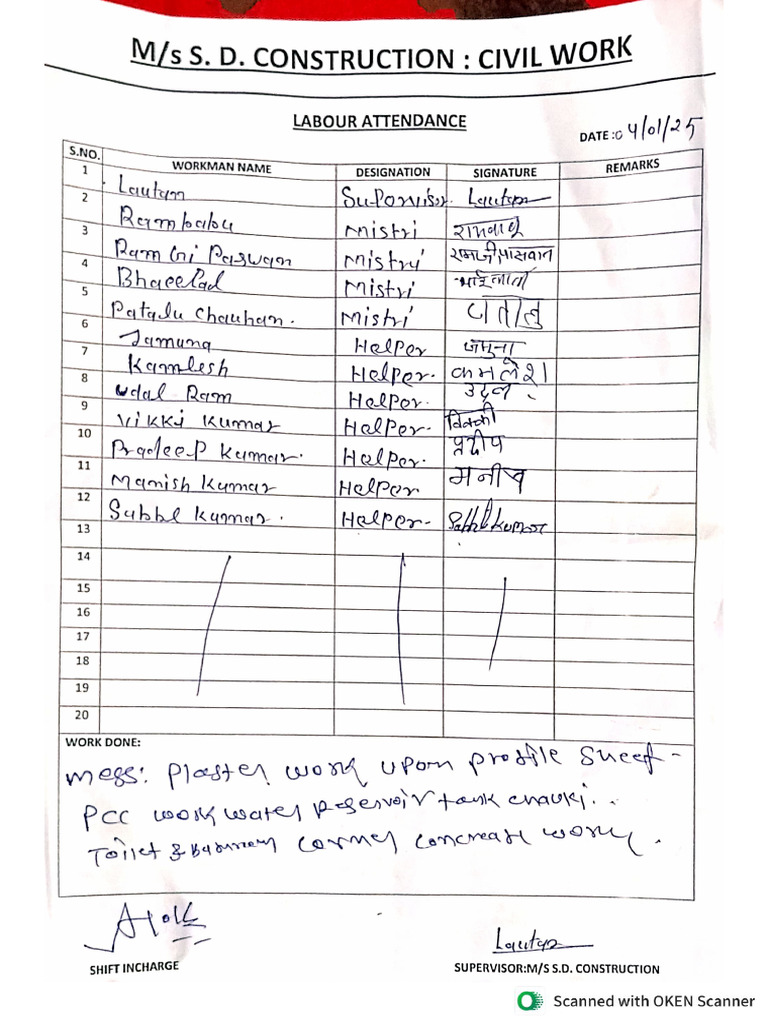 M/s S. D. CONSTRUCTION : CIVIL WORK
LABOUR ATTENDANCE
DATE : 04/01/25
S.NO. WORKMAN NAME DESIGNATION SIGNATURE REMARKS
1 Lautan Supervisor Lautan
2 Rambabu Mistri रामबाबू
3 Ramji Paswan Mistri रामजी पासवान
4 Bhaeelad Mistri
5 Patalu Chauhan. Mistri पतालु
6 Jamuna Helper जमुना
7 Kamlesh Helper. कमलेश
8 Udal Ram Helper. उदल.
9 Vikki Kumar Helper. विक्की
10 Pradeep Kumar. Helper. प्रदीप
11 Manish Kumar Helper मनीष
12 Sabbl Kumar. Helper. Sabbl Kumar
13
14
15
16
17
18
19
20
WORK DONE:
mess: plaster work upon profile sheet -
PCC work water reservoir tank chauki..
Toilet & corner concreate work.
Alok
Lautan
SHIFT INCHARGE SUPERVISOR:M/S S.D. CONSTRUCTION
Scanned with OKEN Scanner